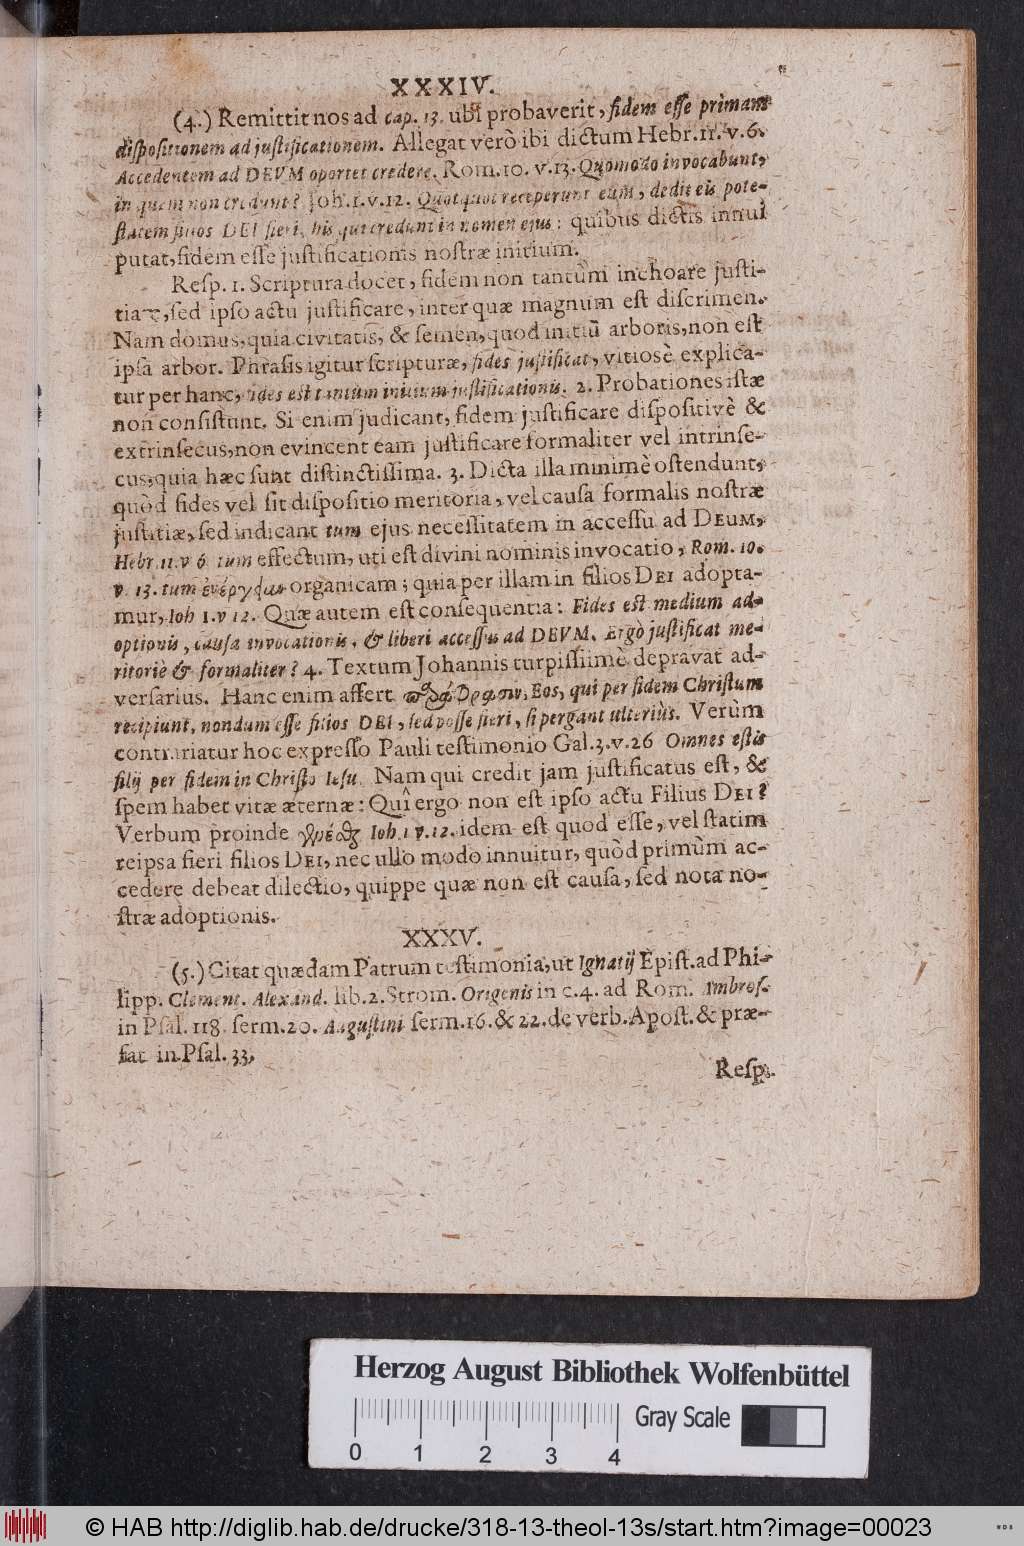 XXXIV.
(4.) Remittit nos ad cap. 13. ubi probaverit, fidem esse primam
dispositionem ad justificationem. Allegat verò ibi dictum Hebr. 11. v. 6.
Accedentem ad DEVM oportet credere. Rom. 10. v. 13. Quomodo invocabunt,
in quem non credunt? Joh. 1. v. 12. Quotquot receperunt eum, dedit eis pote-
statem filios DEI fieri, his qui credunt in nomen ejus: quibus dictis innui
putat, fidem esse justificationis nostræ initium.
Resp. 1. Scriptura docet, fidem non tantùm inchoare justi-
tiam, sed ipso actu justificare, inter quæ magnum est discrimen.
Nam domus, quia civitatis, & semen, quod initiũ arboris, non est
ipsa arbor. Phrasis igitur scripturæ, fides justificat, vitiosè explica-
tur per hanc, fides est tantùm initium justificationis. 2. Probationes istæ
non consistunt. Si enim judicant, fidem justificare dispositivè &
extrinsecus, non evincent eam justificare formaliter vel intrinse-
cus, quia hæc sunt distinctissima. 3. Dicta illa minimè ostendunt,
quòd fides vel sit dispositio meritoria, vel causa formalis nostræ
justitiæ, sed indicant tum ejus necessitatem in accessu ad DEUM,
Hebr. 11. v 6. tum effectum, uti est divini nominis invocatio, Rom. 10.
v. 13. tum ἐνέργειαν organicam; quia per illam in filios DEI adopta-
mur, Ioh 1. v 12. Quæ autem est consequentia: Fides est medium ad-
optionis, causa invocationis, & liberi accessus ad DEVM. Ergò justificat me-
ritoriè & formaliter? 4. Textum Johannis turpissimè depravat ad-
versarius. Hanc enim affert παράφρασιν, Eos, qui per fidem Christum
recipiunt, nondum esse filios DEI, sed posse fieri, si pergant ulteriùs. Verùm
contrariatur hoc expresso Pauli testimonio Gal. 3. v. 26 Omnes estis
filij per fidem in Christo Iesu. Nam qui credit jam justificatus est, &
spem habet vitæ æternæ: Quî ergo non est ipso actu Filius DEI?
Verbum proinde γενέσθαι Ioh. 1 v. 12. idem est quod esse, vel statim
reipsa fieri filios DEI, nec ullo modo innuitur, quòd primùm ac-
cedere debeat dilectio, quippe quæ non est causa, sed nota no-
stræ adoptionis.
XXXV.
(5.) Citat quædam Patrum testimonia, ut Ignatij Epist. ad Phi-
lipp. Clement. Alexand. lib. 2. Strom. Origenis in c. 4. ad Rom. Ambros.
in Psal. 118. serm. 20. Augustini serm. 16. & 22. de verb. Apost. & præ-
fat in Psal. 33.
Resp.
Herzog August Bibliothek Wolfenbüttel
Gray Scale
0 1 2 3 4
© HAB http://diglib.hab.de/drucke/318-13-theol-13s/start.htm?image=00023